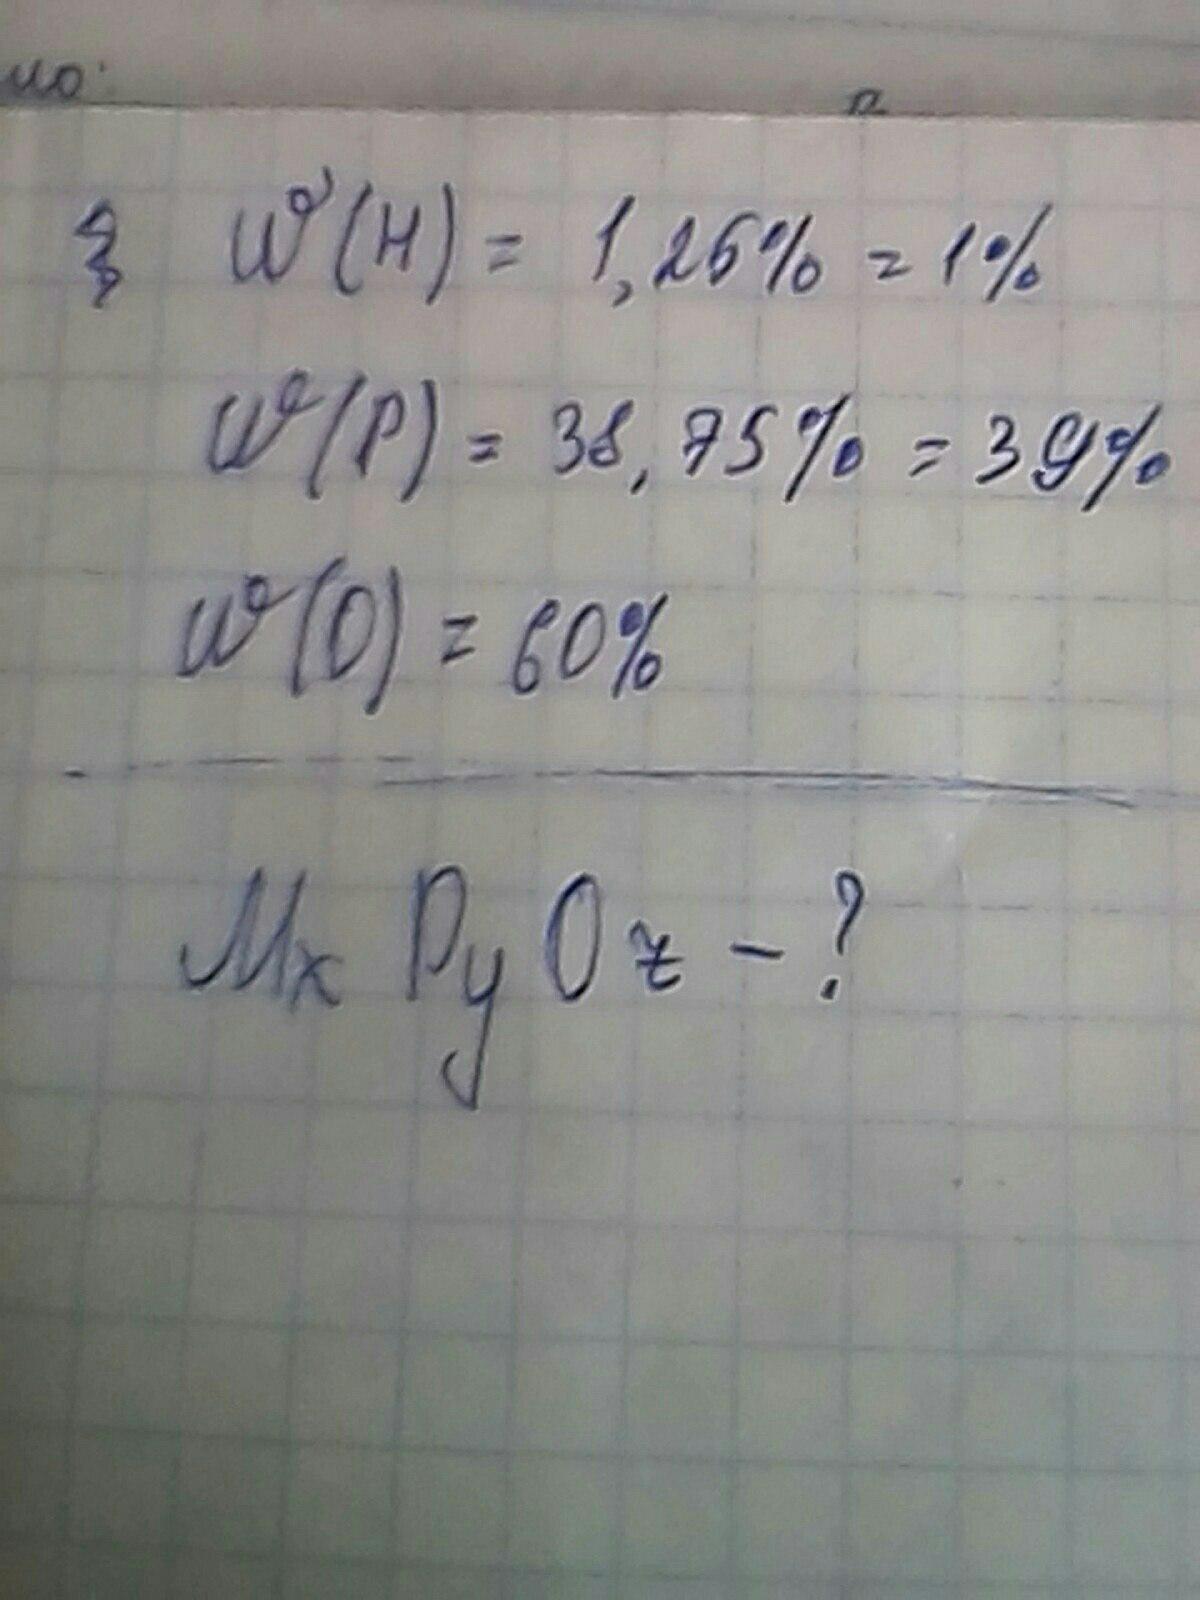 но:
3 W(H) = 1,25% = 1%
W(P) = 38,75% = 39%
W(O) = 60%
Mx Py Oz - ?